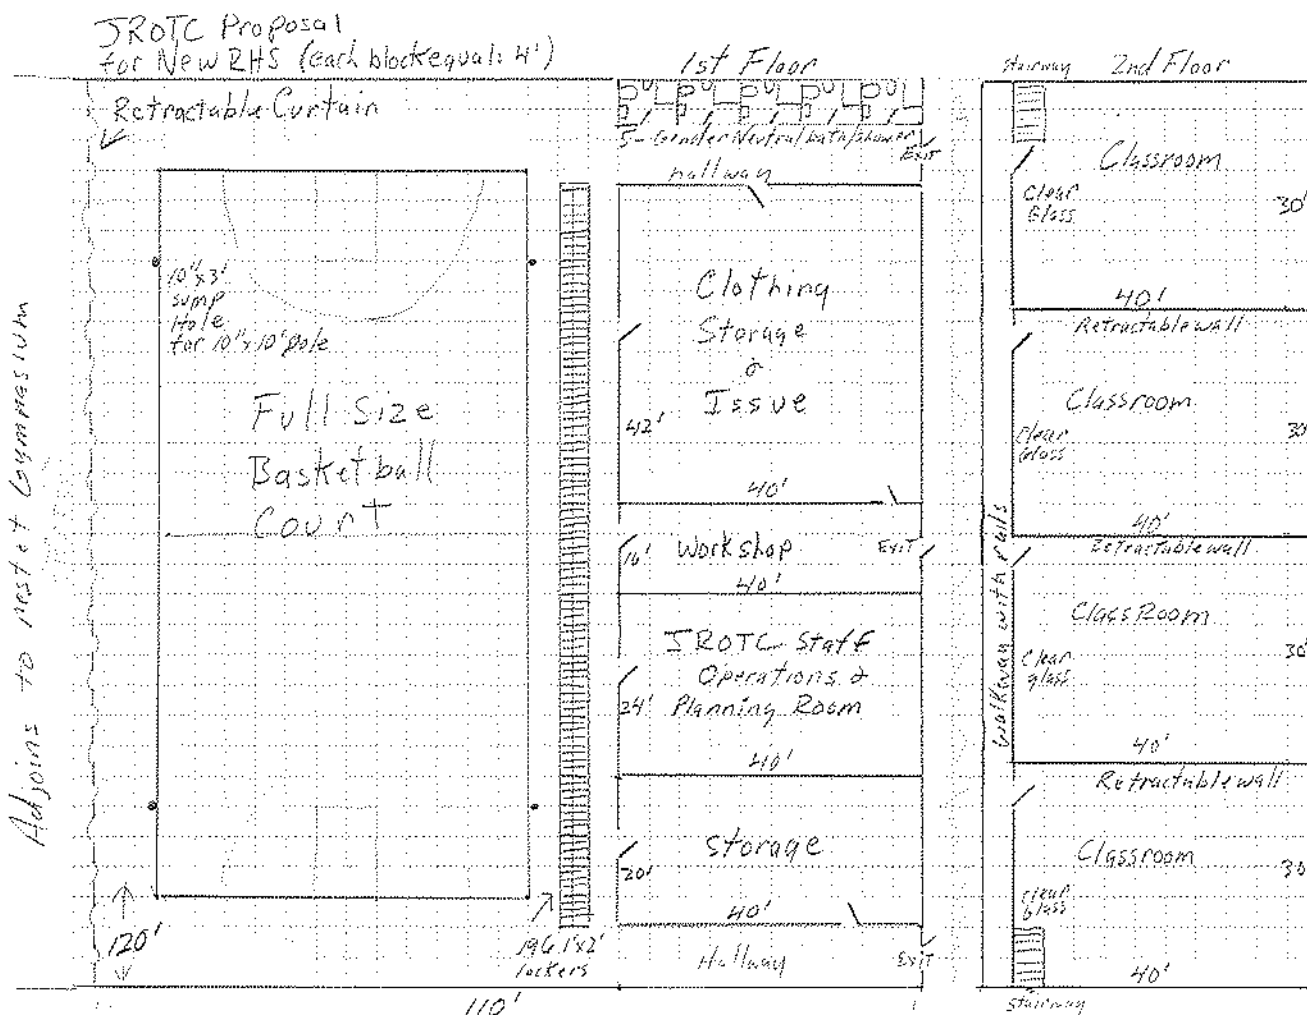 JROTC Proposal
for New RHS (each block equals 4')
Retractable Curtain
Adjoins to
Gymnasium
10"x3'
sump
Hole
for 10"x10' Pole
Full Size
Basketball
Court
120'
110'
196 1'x2'
lockers
1st Floor
5-Gender Neutral bath/shower
Exit
hallway
Clothing
Storage
&
Issue
42'
40'
Workshop
16'
40'
Exit
JROTC Staff
Operations &
Planning Room
24'
40'
Storage
20'
40'
Hallway
Exit
Stairway 2nd Floor
Classroom
Clear
Glass
30'
40'
Retractable wall
Classroom
Clear
Glass
30'
40'
Retractable wall
Walkway with rails
ClassRoom
Clear
glass
30'
40'
Retractable wall
Classroom
Clear
Glass
30
40'
Stairway